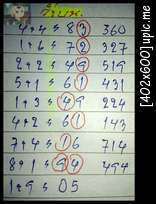 4+4=83 360
1+6=72 327
2+2=49 519
5+1=61 431
1+3=49 224
4+2=61 143
7+4=16 714
8+1=94 494
1+9=05
[402x600] upic.me